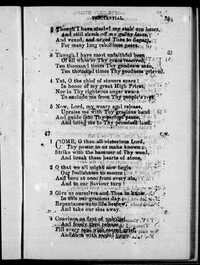 PENITENTIAL.
2 Though I have steeled my stubborn heart,
And still shook off my guilty fears;
And vexed, and urged Thee to depart,
For many long rebellious years.
3 Though I have most unfaithful been
Of all who e'er Thy grace received;
Ten thousand times Thy goodness seen,
Ten thousand times Thy goodness grieved;
4 Yet, O the chief of sinners spare!
In honor of my great High Priest;
Nor in Thy righteous anger swear
To exclude me from Thy people's rest.
5 Now, Lord, my weary soul release,
Upraise me with Thy gracious hand,
And guide into Thy perfect peace,
And bring me to Thy promised land.
47
1 COME, O thou all victorious Lord,
Thy power to us make known;
Strike with the hammer of Thy word,
And break these hearts of stone.
2 O that we all might now begin
Our foolishness to mourn;
And turn at once from every sin,
And to our Saviour turn!
3 Give us ourselves and Thee to know
In this our gracious day;
Repentance unto life bestow,
And take our sins away.
4 Convince us first of unbelief,
And freely then release;
Fill every soul with sacred grief,
And then with sacred